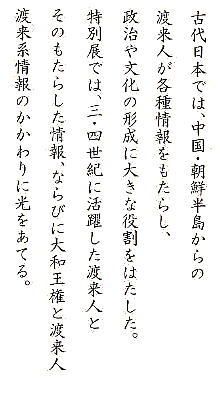 古代日本では、中国・朝鮮半島からの
渡来人が各種情報をもたらし、
政治や文化の形成に大きな役割をはたした。
特別展では、三・四世紀に活躍した渡来人と
そのもたらした情報、ならびに大和王権と渡来人
渡来系情報のかかわりに光をあてる。